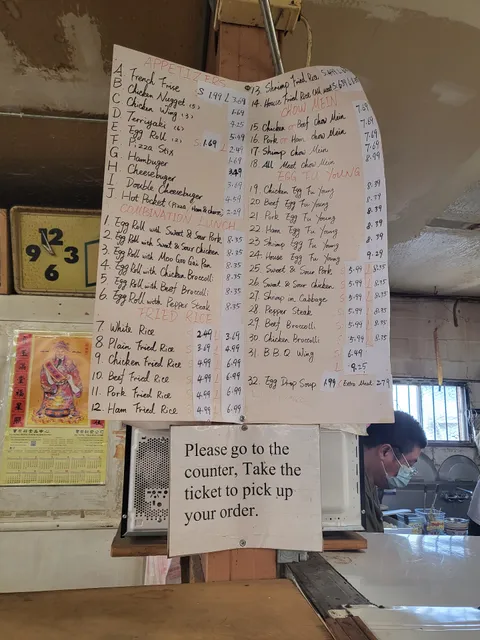 APPETIZERS
A French Frise S 1.99 L 3.69
B Chicken Nugget (5)
C Chicken Wing (3)
D Terriyaki (6)
E Egg Roll (2) S 1.69
F Pizza Stix
G Hambuger
H Cheesebuger
I Double Cheesebuger
J Hot Pocket
COMBINATION LUNCH
1. Egg Roll with Sweet & Sour Pork 8.35
2. Egg Roll with Sweet & Sour Chicken 8.35
3. Egg Roll with Moo Goo Gai Pan 8.35
4. Egg Roll with Chicken Broccoli 8.35
5. Egg Roll with Beef Broccoli 8.35
6. Egg Roll with Pepper Steak 8.35
FRIED RICE
7 White Rice 2.49 L 3.69
8 Plain Fried Rice S 3.69 L 4.99
9. Chicken Fried Rice S 4.99 L 6.99
10. Beef Fried Rice S 4.99 L 6.99
11. Pork Fried Rice S 4.99 L 6.99
12. Ham Fried Rice S 4.99 L 6.99
13. Shrimp Fried Rice
14. House Fried Rice
CHOW MEIN
15. Chicken or Beef Chow Mein 7.69
16. Pork or Ham Chow Mein 7.69
17. Shrimp Chow Mein 7.69
18. All Meat Chow Mein 8.99
EGG FU YOUNG
19. Chicken Egg Fu Young 8.39
20. Beef Egg Fu Young 8.39
21. Pork Egg Fu Young 8.39
22. Ham Egg Fu Young 8.39
23. Shrimp Egg Fu Young 8.39
24. House Egg Fu Young 9.29
25. Sweet & Sour Pork S 5.99 L 8.35
26. Sweet & Sour Chicken S 5.99 L 8.35
27. Shrimp in Cabbage S 5.99 L 8.35
28. Pepper Steak S 5.99 L 8.35
29. Beef Broccoli S 5.99 L 8.35
30. Chicken Broccoli S 5.99 L 8.35
31 B.B.Q Wing S 6.49
L 8.25
32. Egg Drop Soup 1.99
12
9
3
6
Please go to the
counter, Take the
ticket to pick up
your order.